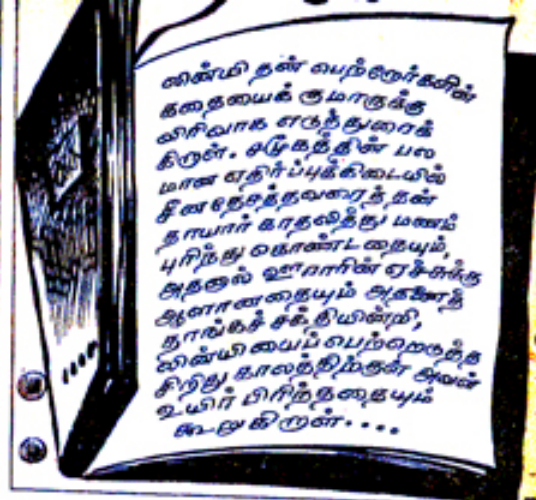 லின்யி தன் பெற்றோர்களின்
கதையைக் குமாருக்கு
விரிவாக எடுத்துரைக்
கிறாள். சமூகத்தின் பல
மான எதிர்ப்புக்கிடையில்
சீனதேசத்தவரைத் தன்
தாயார் காதலித்து மணம்
புரிந்து கொண்டதையும்,
அதனால் ஊராரின் ஏச்சுக்கு
ஆளானதையும் அதனைத்
தாங்கச் சக்தியின்றி,
லின்யியைப் பெற்றெடுத்த
சிறிது காலத்திற்குள் அவள்
உயிர் பிரிந்ததையும்
கூறுகிறாள்....